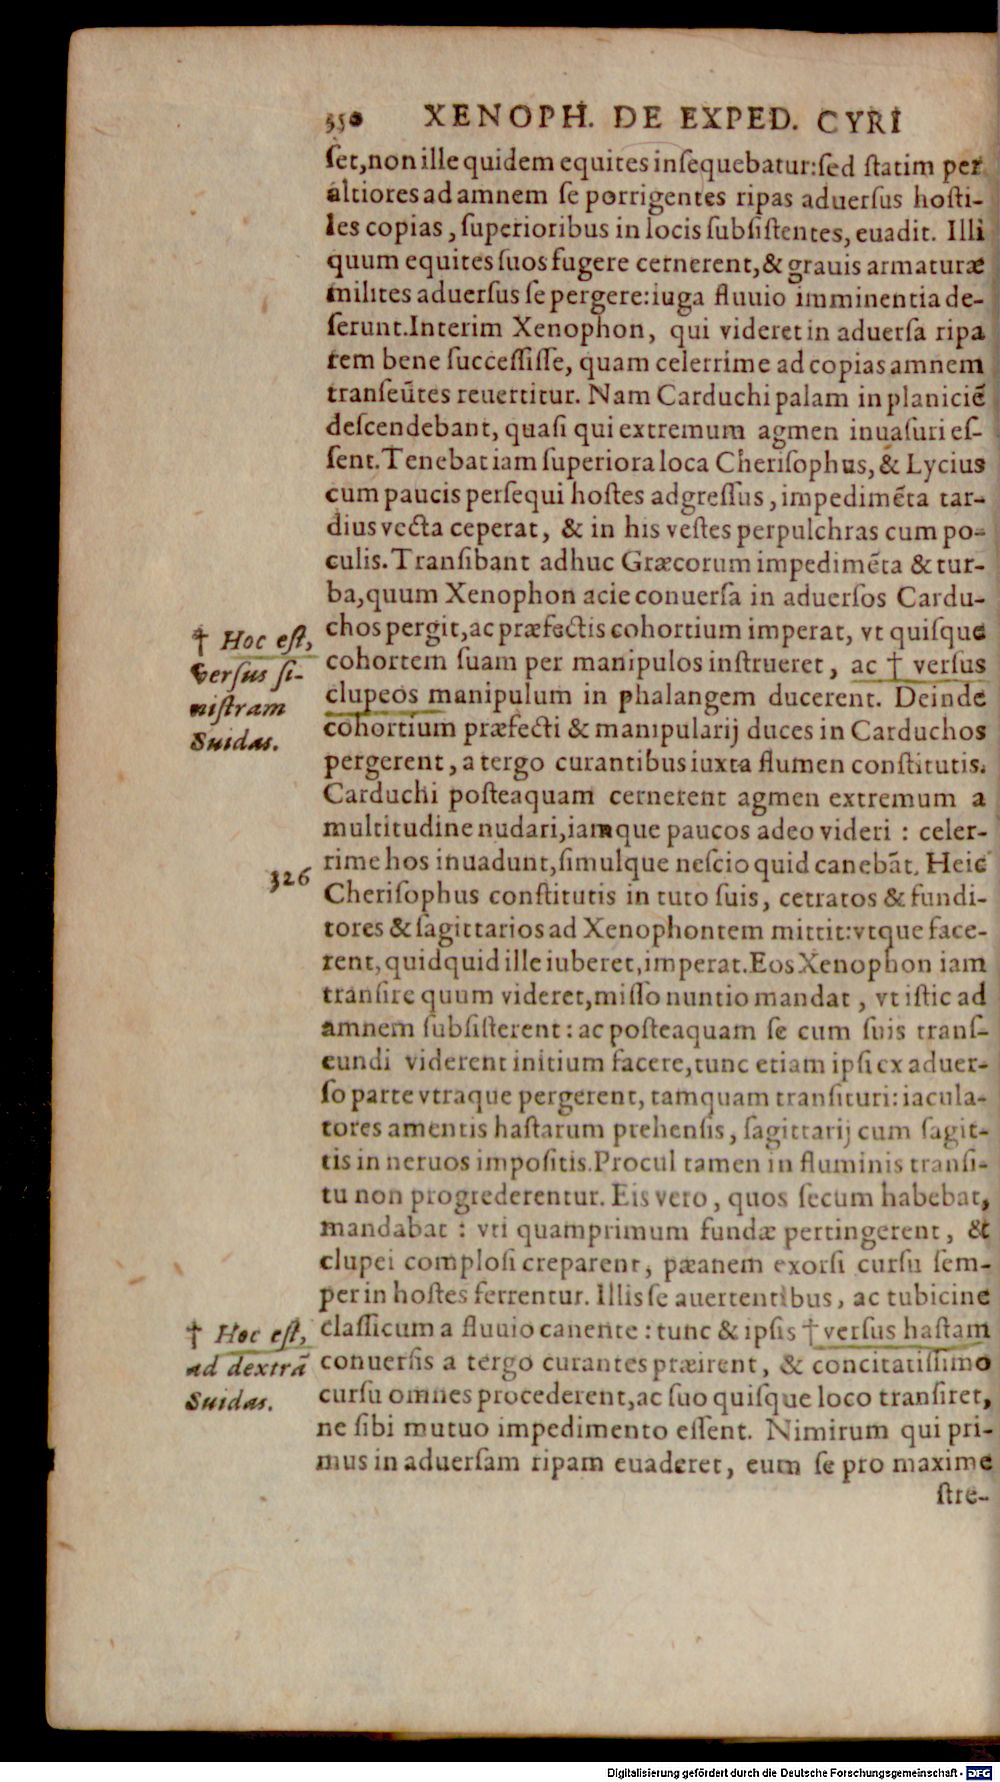 350 XENOPH. DE EXPED. CYRI
ſet, non ille quidem equites inſequebatur: ſed ſtatim per
altiores ad amnem ſe porrigentes ripas aduerſus hoſti-
les copias, ſuperioribus in locis ſubſiſtentes, euadit. Illi
quum equites ſuos fugere cernerent, & grauis armaturæ
milites aduerſus ſe pergere: iuga fluuio imminentia de-
ſerunt. Interim Xenophon, qui videret in aduerſa ripa
rem bene ſucceſſiſſe, quam celerrime ad copias amnem
tranſeũtes reuertitur. Nam Carduchi palam in planiciẽ
deſcendebant, quaſi qui extremum agmen inuaſuri eſ-
ſent. Tenebat iam ſuperiora loca Cheriſophus, & Lycius
cum paucis perſequi hoſtes adgreſſus, impedimẽta tar-
dius vecta ceperat, & in his veſtes perpulchras cum po-
culis. Tranſibant adhuc Græcorum impedimẽta & tur-
ba, quum Xenophon acie conuerſa in aduerſos Cardu-
chos pergit, ac præfectis cohortium imperat, vt quiſque
cohortem ſuam per manipulos inſtrueret, ac † verſus
clupeos manipulum in phalangem ducerent. Deinde
cohortium præfecti & manipularij duces in Carduchos
pergerent, a tergo curantibus iuxta flumen conſtitutis.
Carduchi poſteaquam cernerent agmen extremum a
multitudine nudari, iamque paucos adeo videri : celer-
rime hos inuadunt, ſimulque neſcio quid canebãt. Heic
Cheriſophus conſtitutis in tuto ſuis, cetratos & fundi-
tores & ſagittarios ad Xenophontem mittit: vtque face-
rent, quidquid ille iuberet, imperat. Eos Xenophon iam
tranſire quum videret, miſſo nuntio mandat, vt iſtic ad
amnem ſubſiſterent: ac poſteaquam ſe cum ſuis tranſ-
eundi viderent initium facere, tunc etiam ipſi ex aduer-
ſo parte vtraque pergerent, tamquam tranſituri: iacula-
tores amentis haſtarum prehenſis, ſagittarij cum ſagit-
tis in neruos impoſitis. Procul tamen in fluminis tranſi-
tu non progrederentur. Eis vero, quos ſecum habebat,
mandabat : vti quamprimum fundæ pertingerent, &
clupei comploſi creparent, pæanem exorſi curſu ſem-
per in hoſtes ferrentur. Illis ſe auertentibus, ac tubicine
claſſicum a fluuio canente: tunc & ipſis † verſus haſtam
conuerſis a tergo curantes præirent, & concitatiſſimo
curſu omnes procederent, ac ſuo quiſque loco tranſiret,
ne ſibi mutuo impedimento eſſent. Nimirum qui pri-
mus in aduerſam ripam euaderet, eum ſe pro maxime
ſtre-
† Hoc eſt,
verſus ſi-
niſtram
Suidas.
326
† Hoc eſt,
ad dextrã
Suidas.
Digitalisierung gefördert durch die Deutsche Forschungsgemeinschaft - DFG